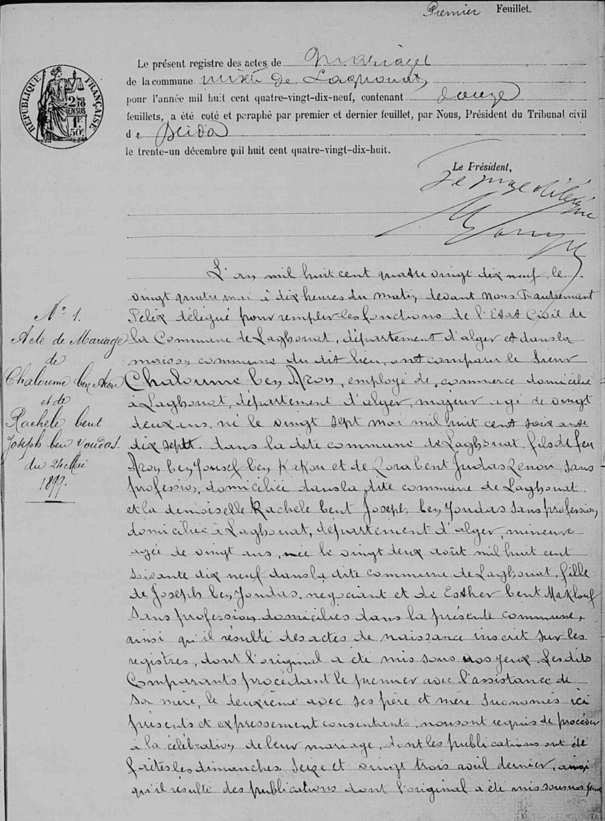 Premier Feuillet.
Le présent registre des actes de Mariage
de la commune mixte de Laghouat
pour l'année mil huit cent quatre-vingt-dix-neuf, contenant douze
feuillets, a été coté et paraphé par premier et dernier feuillet, par Nous, Président du Tribunal civil
de Blida
le trente-un décembre mil huit cent quatre-vingt-dix-huit.
RÉPUBLIQUE FRANÇAISE
Le Président,
L'an mil huit cent quatre vingt dix neuf, le
vingt quatre mai à dix heures du matin, devant nous
Felix délégué pour remplir les fonctions de l'Etat Civil de
la Commune de Laghouat, département d'alger et dans la
maison commune du dit lieu, ont comparu le sieur
Chaloume ben Aron, employé de commerce domicilié
à Laghouat, département d'alger, majeur agé de vingt
deux ans, né le vingt sept mai mil huit cent soixante
dix sept dans la dite commune de Laghouat fils de feu
Aron ben Youssef ben et de Zora bent Judas Zenou sans
profession, domiciliée dans la dite commune de Laghouat
et la demoiselle Rachele bent Joseph ben Youdas sans profession,
domiciliée à Laghouat, département d'alger, mineure
agée de vingt ans, née le vingt deux août mil huit cent
soixante dix neuf dans la dite commune de Laghouat, fille
de Joseph ben Youdas, négociant et de Esther bent Maklouf
sans profession domiciliés dans la présente commune,
ainsi qu'il résulte des actes de naissance inscrit sur les
registres, dont l'original a été mis sous nos yeux. Les dits
Comparants procédant le premier avec l'assistance de
sa mère, le deuxième avec ses père et mère susnomés ici
présents et expressement consentants, nous ont requis de procéder
à la célébration de leur mariage, dont les publications ont été
faites les dimanches seize et vingt trois avril dernier, ainsi
qu'il résulte des publications dont l'original a été mis sous nos yeux
N° 1.
Acte de Mariage
de
Chaloume ben Aron
et de
Rachele bent
Joseph ben Youdas.
du 24 Mai
1899.